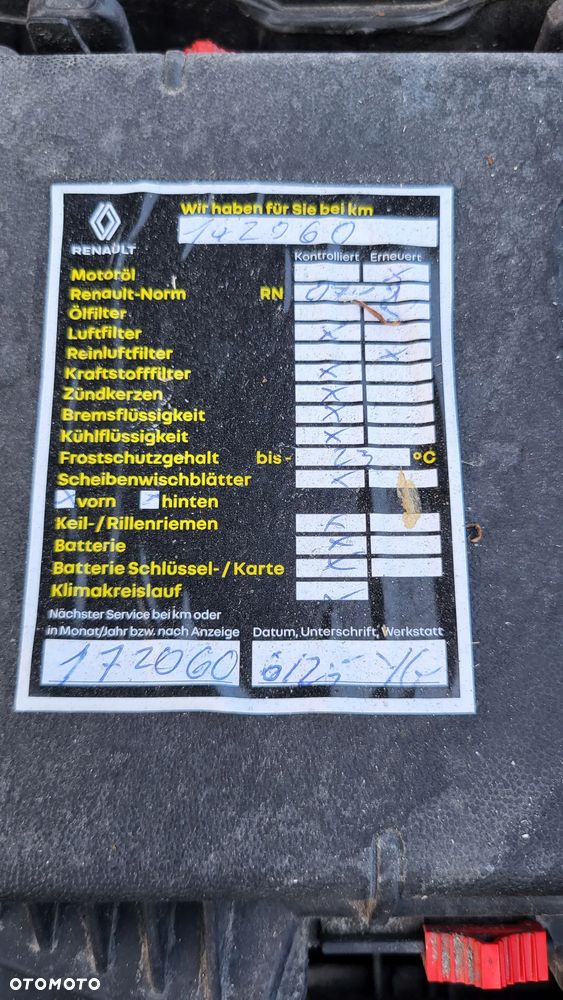 Wir haben für Sie bei km
RENAULT
142060
Kontrolliert Erneuert
Motoröl X
Renault-Norm RN
Ölfilter
Luftfilter X
Reinluftfilter X
Kraftstofffilter X
Zündkerzen X
Bremsflüssigkeit X
Kühlflüssigkeit X
Frostschutzgehalt bis- °C
Scheibenwischblätter
X vorn hinten
Keil-/Rillenriemen
Batterie X
Batterie Schlüssel-/Karte X
Klimakreislauf
Nächster Service bei km oder
in Monat/Jahr bzw. nach Anzeige Datum, Unterschrift, Werkstatt
172060
OTOMOTO